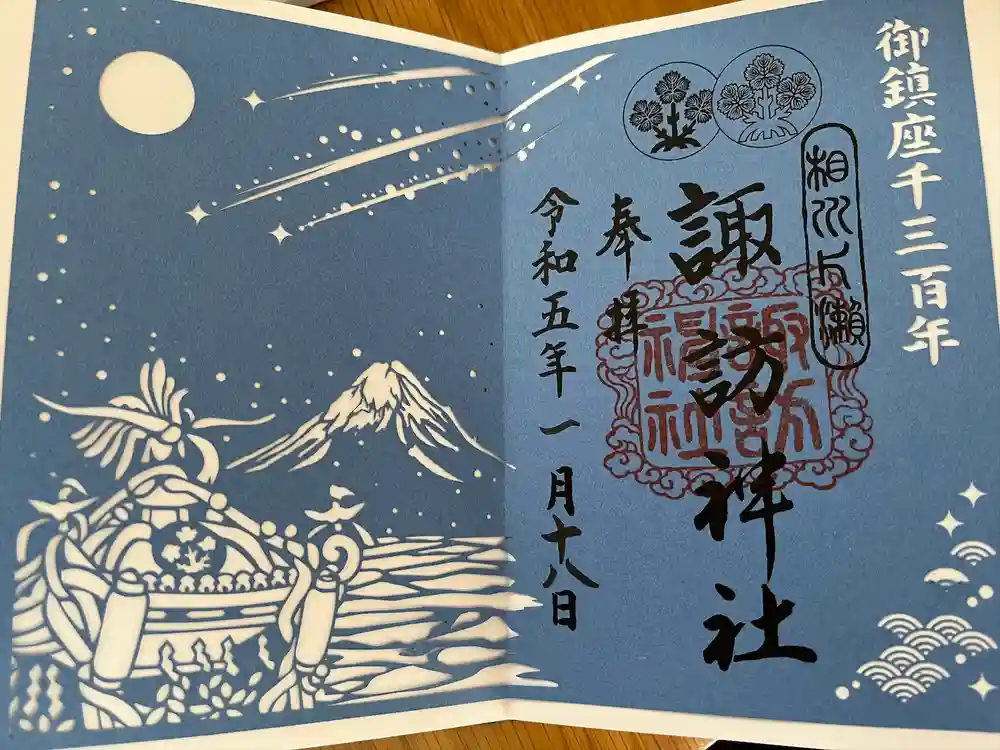 御鎮座千三百年
相州片瀬
諏訪神社
諏訪神社
奉拝
令和五年一月十八日